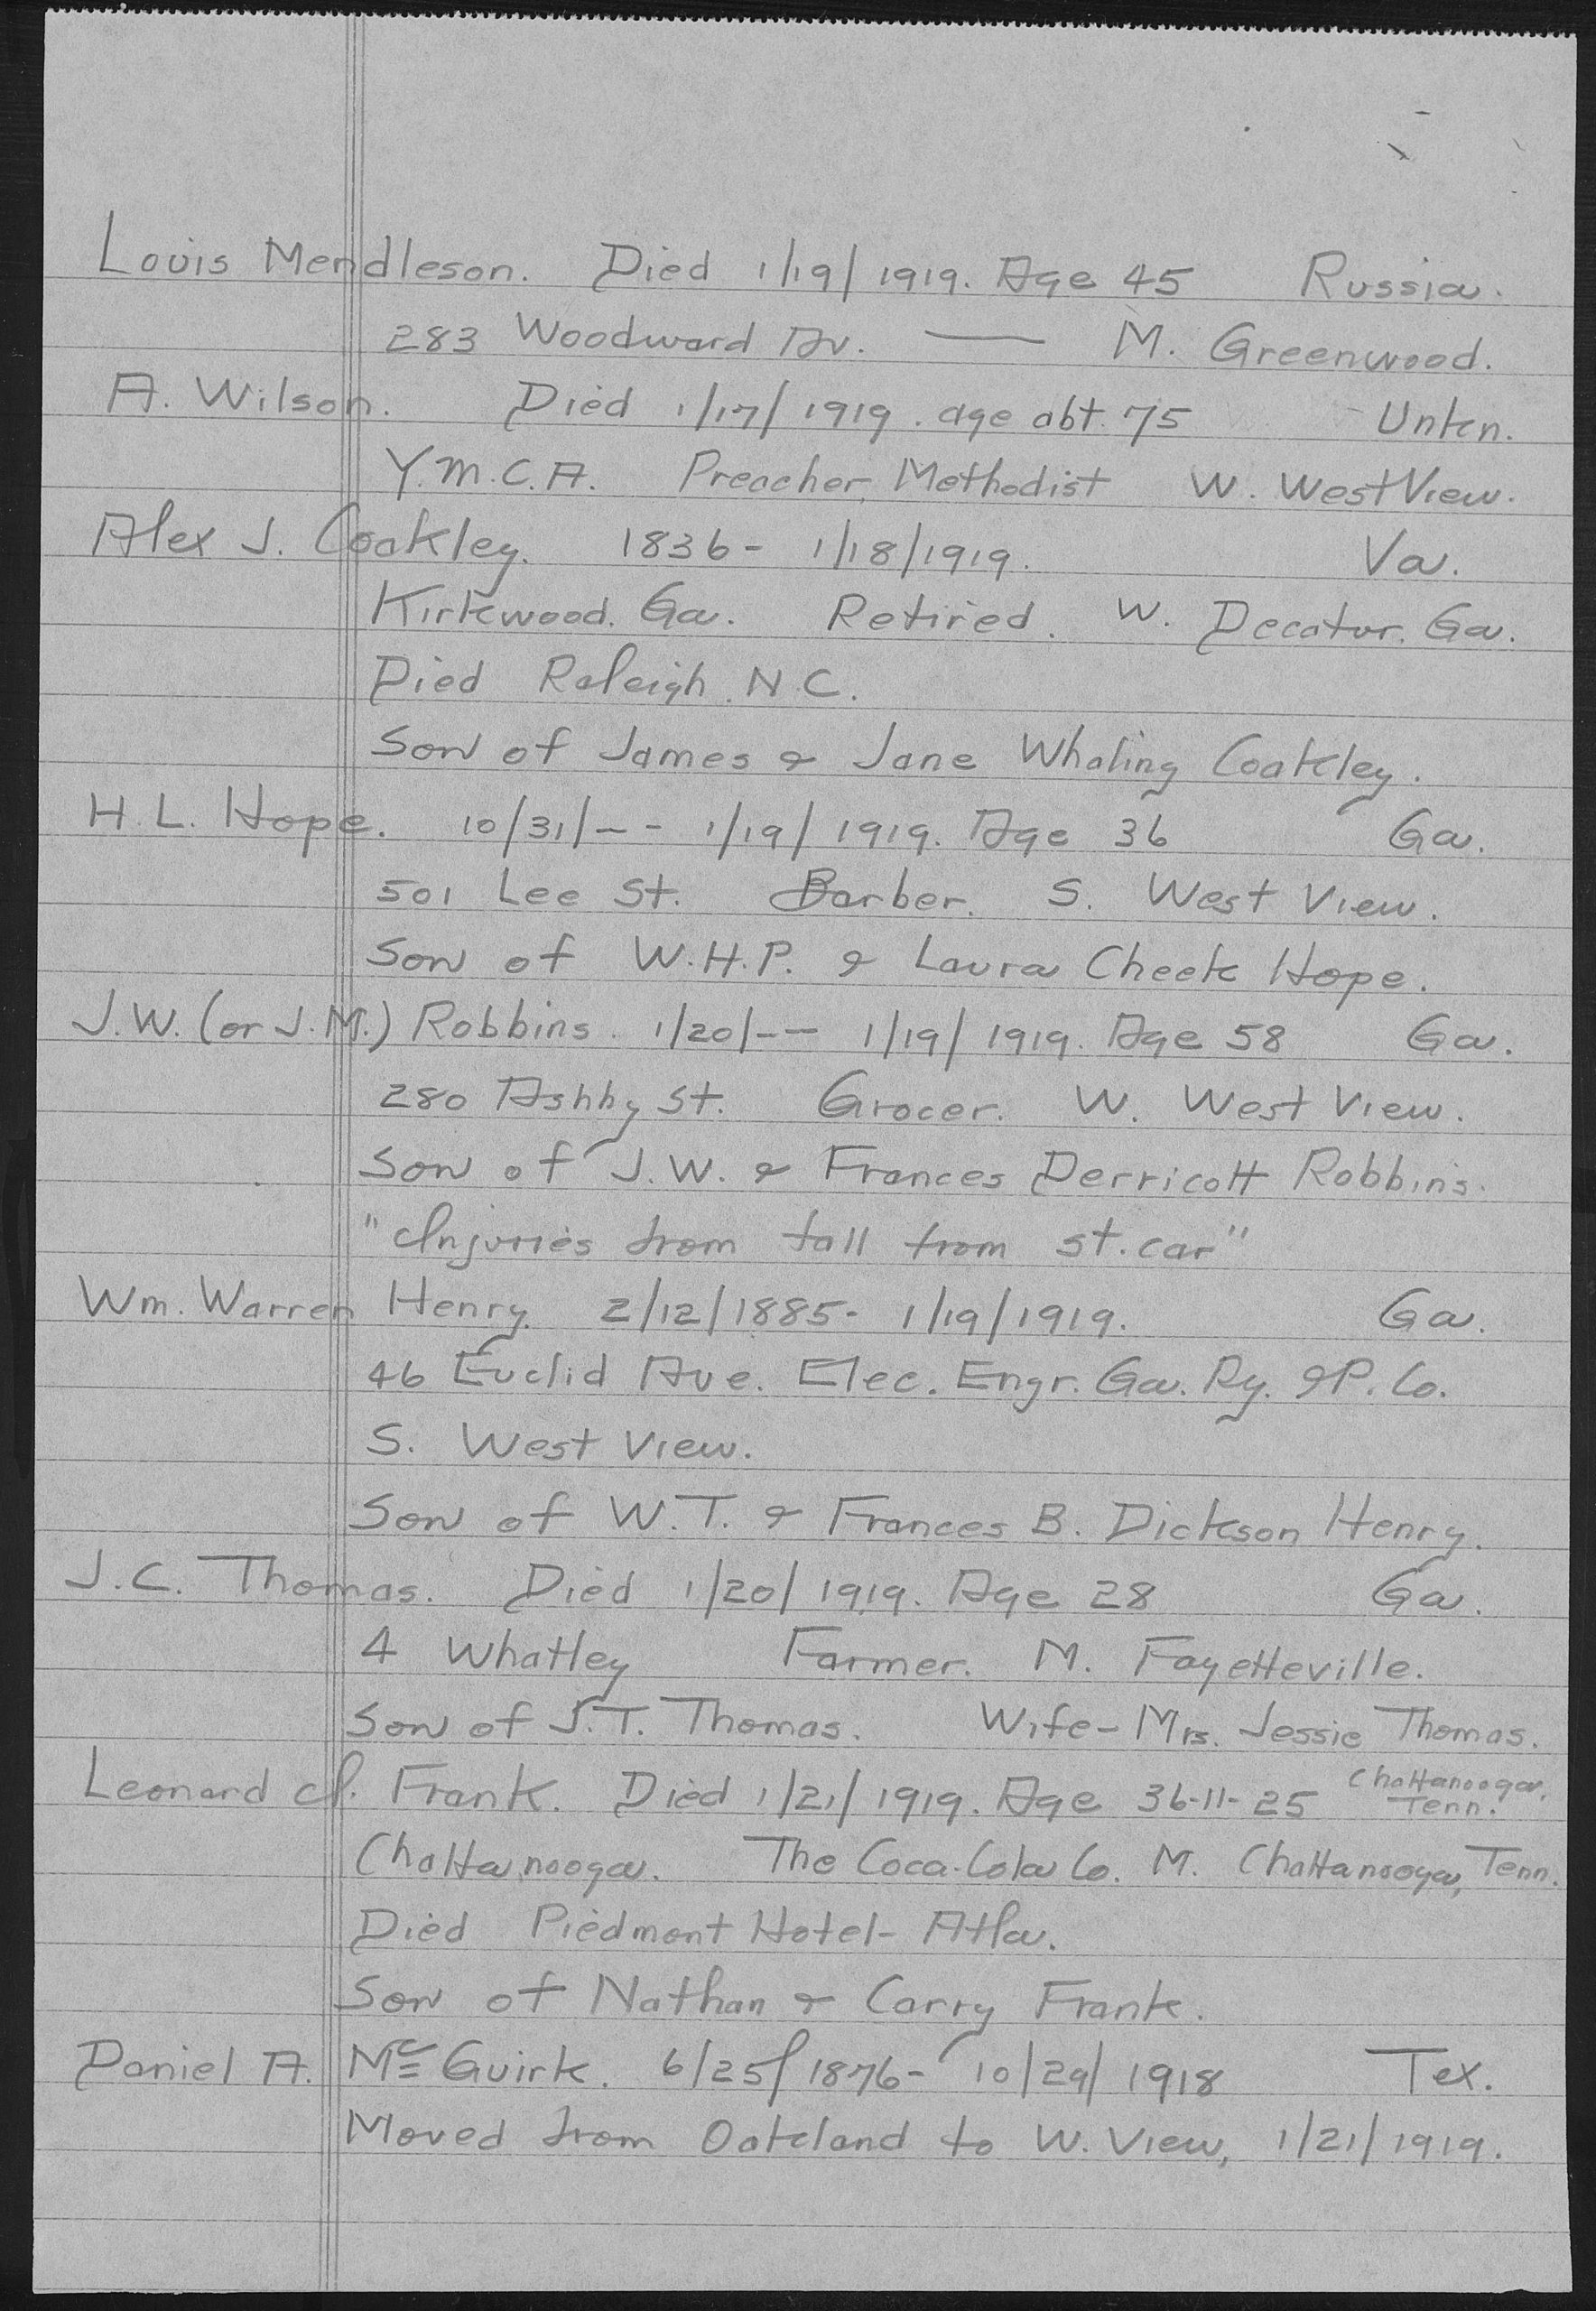 Louis Mendleson. Died 1/19/1919. Age 45 Russia.
283 Woodward Av. — M. Greenwood.
A. Wilson. Died 1/17/1919. age abt. 75 Unkn.
Y.M.C.A. Preacher, Methodist W. West View.
Alex J. Coakley. 1836- 1/18/1919. Va.
Kirkwood. Ga. Retired. W. Decatur. Ga.
Died Raleigh. N.C.
Son of James & Jane Whaling Coakley.
H.L. Hope. 10/31/-- 1/19/1919. Age 36 Ga.
501 Lee St. Barber. S. West View.
Son of W.H.P. & Laura Cheek Hope.
J.W. (or J.M.) Robbins. 1/20/-- 1/19/1919. Age 58 Ga.
280 Ashby St. Grocer. W. West View.
Son of J.W. & Frances Derricott Robbins.
"Injuries from fall from st. car"
Wm. Warren Henry. 2/12/1885- 1/19/1919. Ga.
46 Euclid Ave. Elec. Engr. Ga. Ry. & P. Co.
S. West View.
Son of W.T. & Frances B. Dickson Henry.
J.C. Thomas. Died 1/20/1919. Age 28 Ga.
4 Whatley Farmer. M. Fayetteville.
Son of J.T. Thomas. Wife- Mrs. Jessie Thomas.
Leonard I. Frank. Died 1/21/1919. Age 36-11-25 Chattanooga, Tenn.
Chattanooga. The Coca-Cola Co. M. Chattanooga, Tenn.
Died Piedmont Hotel- Atla.
Son of Nathan & Carry Frank.
Daniel A. McGuirk. 6/25/1876- 10/29/1918 Tex.
Moved from Oakland to W. View, 1/21/1919.